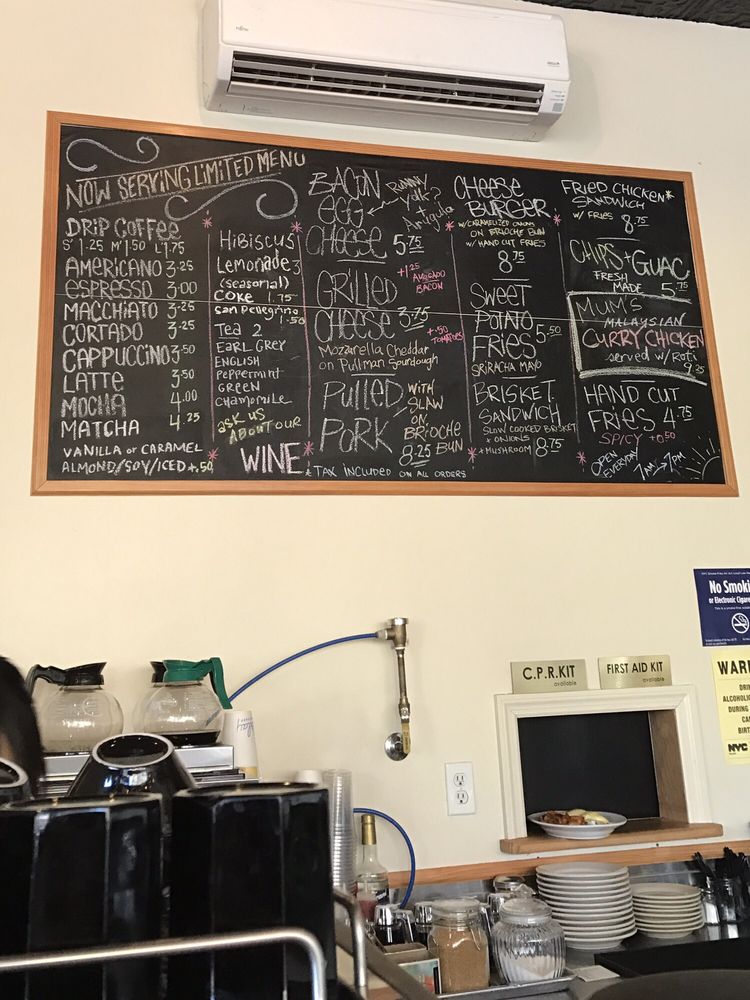 FUJITSU
NOW SERVING LIMITED MENU
DRIP COFFEE
S' 1.25 M'1.50 L'1.75
AMERICANO 3.25
ESPRESSO 3.00
MACCHIATO 3.25
CORTADO 3.25
CAPPUCCINO 3.50
LATTE 3.50
MOCHA 4.00
MATCHA 4.25
VANILLA or CARAMEL
ALMOND/SOY/ICED +.50
HiBiSCUS
Lemonade 3
(seasonal)
COKE 1.75
San Pellegrino 1.50
Tea 2
EARL GREY
ENGLISH
PePPeRMiNT
GREEN
CHAMOMILE
ASK US
ABOUT OUR
WINE
BACON
EGG
CHEESE 5.75
RUNNY
YOLK?
+ Arugula
+1.25
AVOCADO
BACON
GRILLED
CHEESE 3.75
+.50
TOMATOES
Mozzarella Cheddar
on Pullman Sourdough
PULLED
PORK
WITH
SLAW
ON
BRIOCHE
BUN
8.25
* TAX INCLUDED ON ALL ORDERS
CHEESE
BURGER
W/CARAMELIZED ONIONS
ON BRIOCHE BUN
W/ HAND CUT FRIES
8.75
SWEET
POTATO
FRIES 5.50
SRIRACHA MAYO
BRISKET
SANDWICH
SLOW COOKED BRISKET
+ ONIONS
+ MUSHROOM 8.75
FRIED CHICKEN*
SANDWICH
W/ FRIES 8.75
CHIPS + GUAC
FRESH
MADE 5.75
MUM'S
MALAYSIAN
CURRY CHICKEN
served w/ Roti
9.25
HAND CUT
FRIES 4.75
SPICY +0.50
OPEN
EVERYDAY
7AM→7PM
No Smoki
or Electronic Cigare
C.P.R.KIT
available
FIRST AID KIT
available
WAR
DRI
ALCOHOLI
DURING
CA
BIRT
NYC